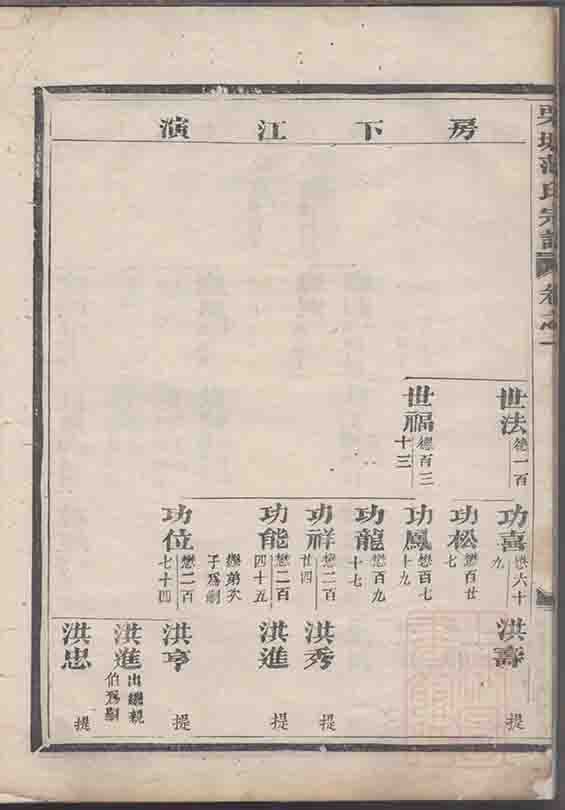 房下江演
世法 德一百
世福 德百三十三
功喜 懋六十九
功松 懋百廿七
功鳳 懋百七十九
功龍 懋百九十七
功祥 懋二百廿四
功能 懋二百四十五
繼弟次子爲嗣
功位 懋二百七十四
洪壽 提
洪秀 提
洪進 提
洪亨 提
洪進 出繼親伯爲嗣
洪忠 提
氏宗譜 卷之一